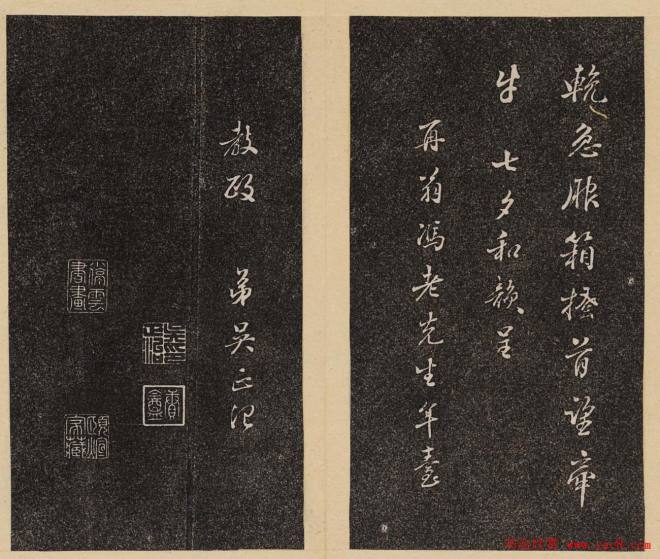 輓急服箱搔首望牽
牛 七夕和韻呈
再翁馮老先生年臺
教政 弟吳正治